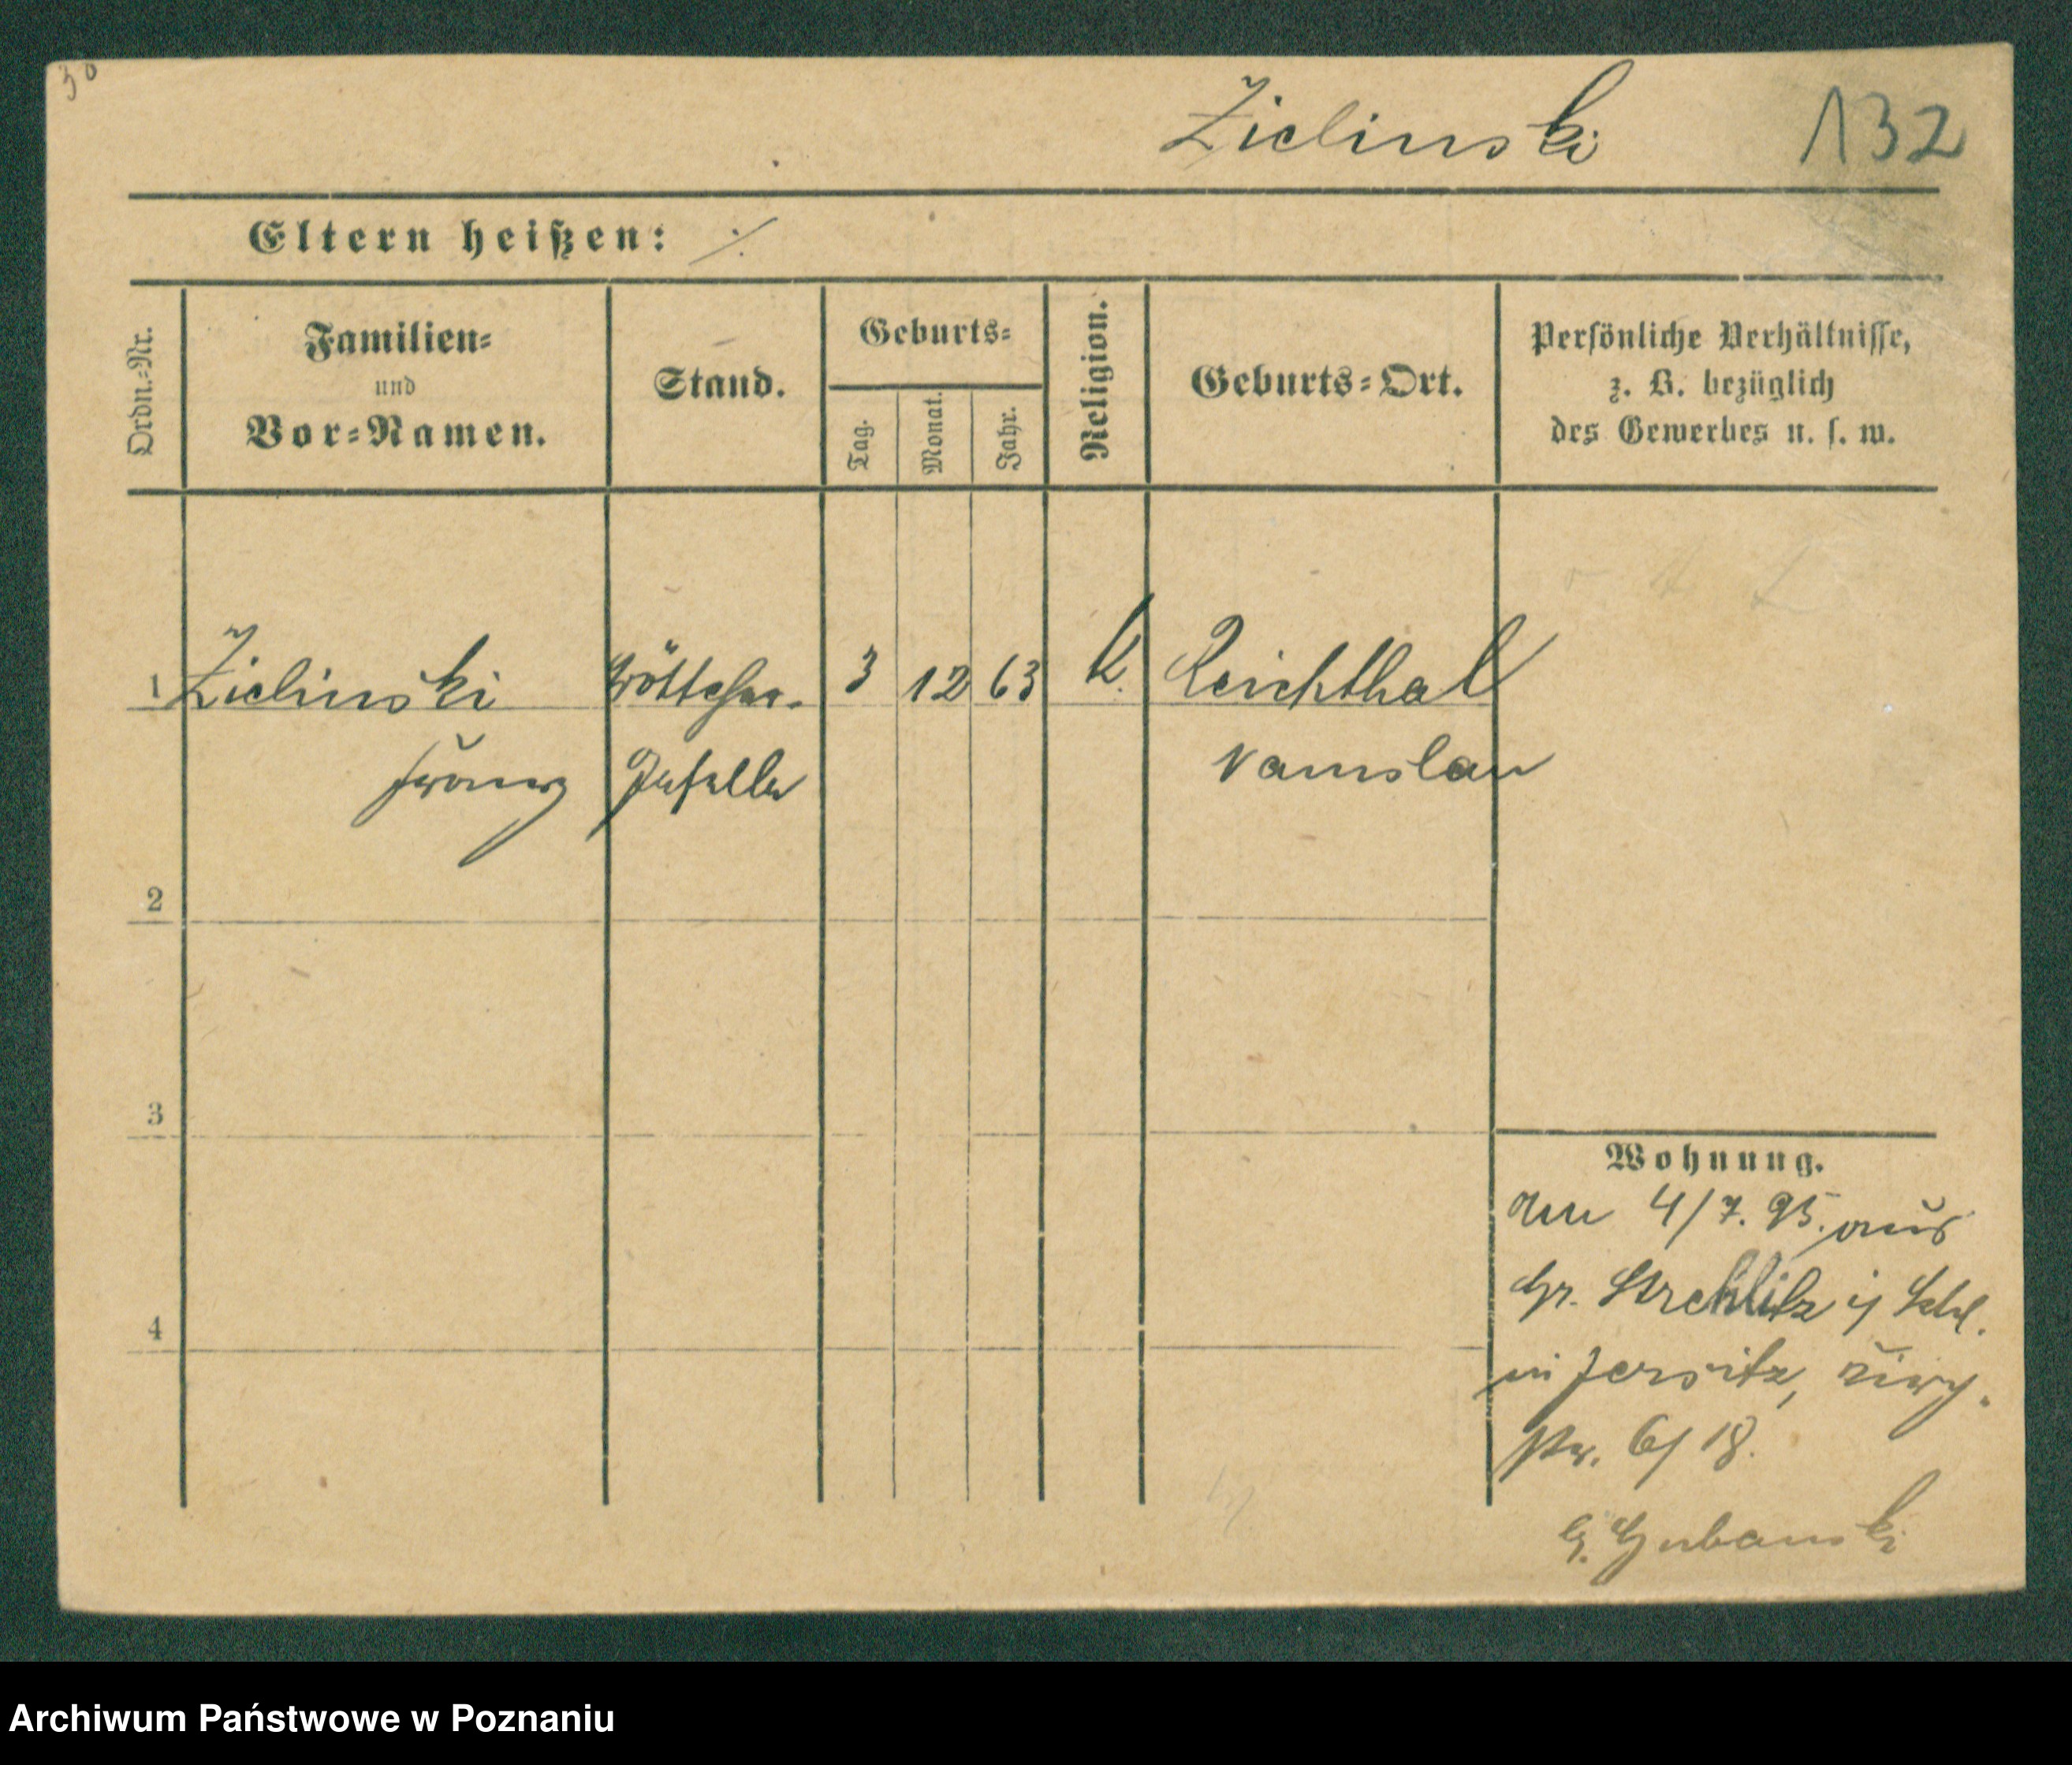 30
Zielinski
132
Eltern heißen: ./.
Ordn.-Nr.
Familien-
und
Vor-Namen.
Stand.
Geburts-
Tag.
Monat.
Jahr.
Religion.
Geburts-Ort.
Persönliche Verhältnisse,
z. B. bezüglich
des Gewerbes u. s. w.
1 Zielinski Böttcher- 3 12 63 k. Reichthal
Franz Geselle Namslau
2
3
4
Wohnung.
am 4/7. 95. aus
Gr. Strehlitz i/ Schl.
in Jersitz,
str. 6/18.
G. Gubanski
Archiwum Państwowe w Poznaniu